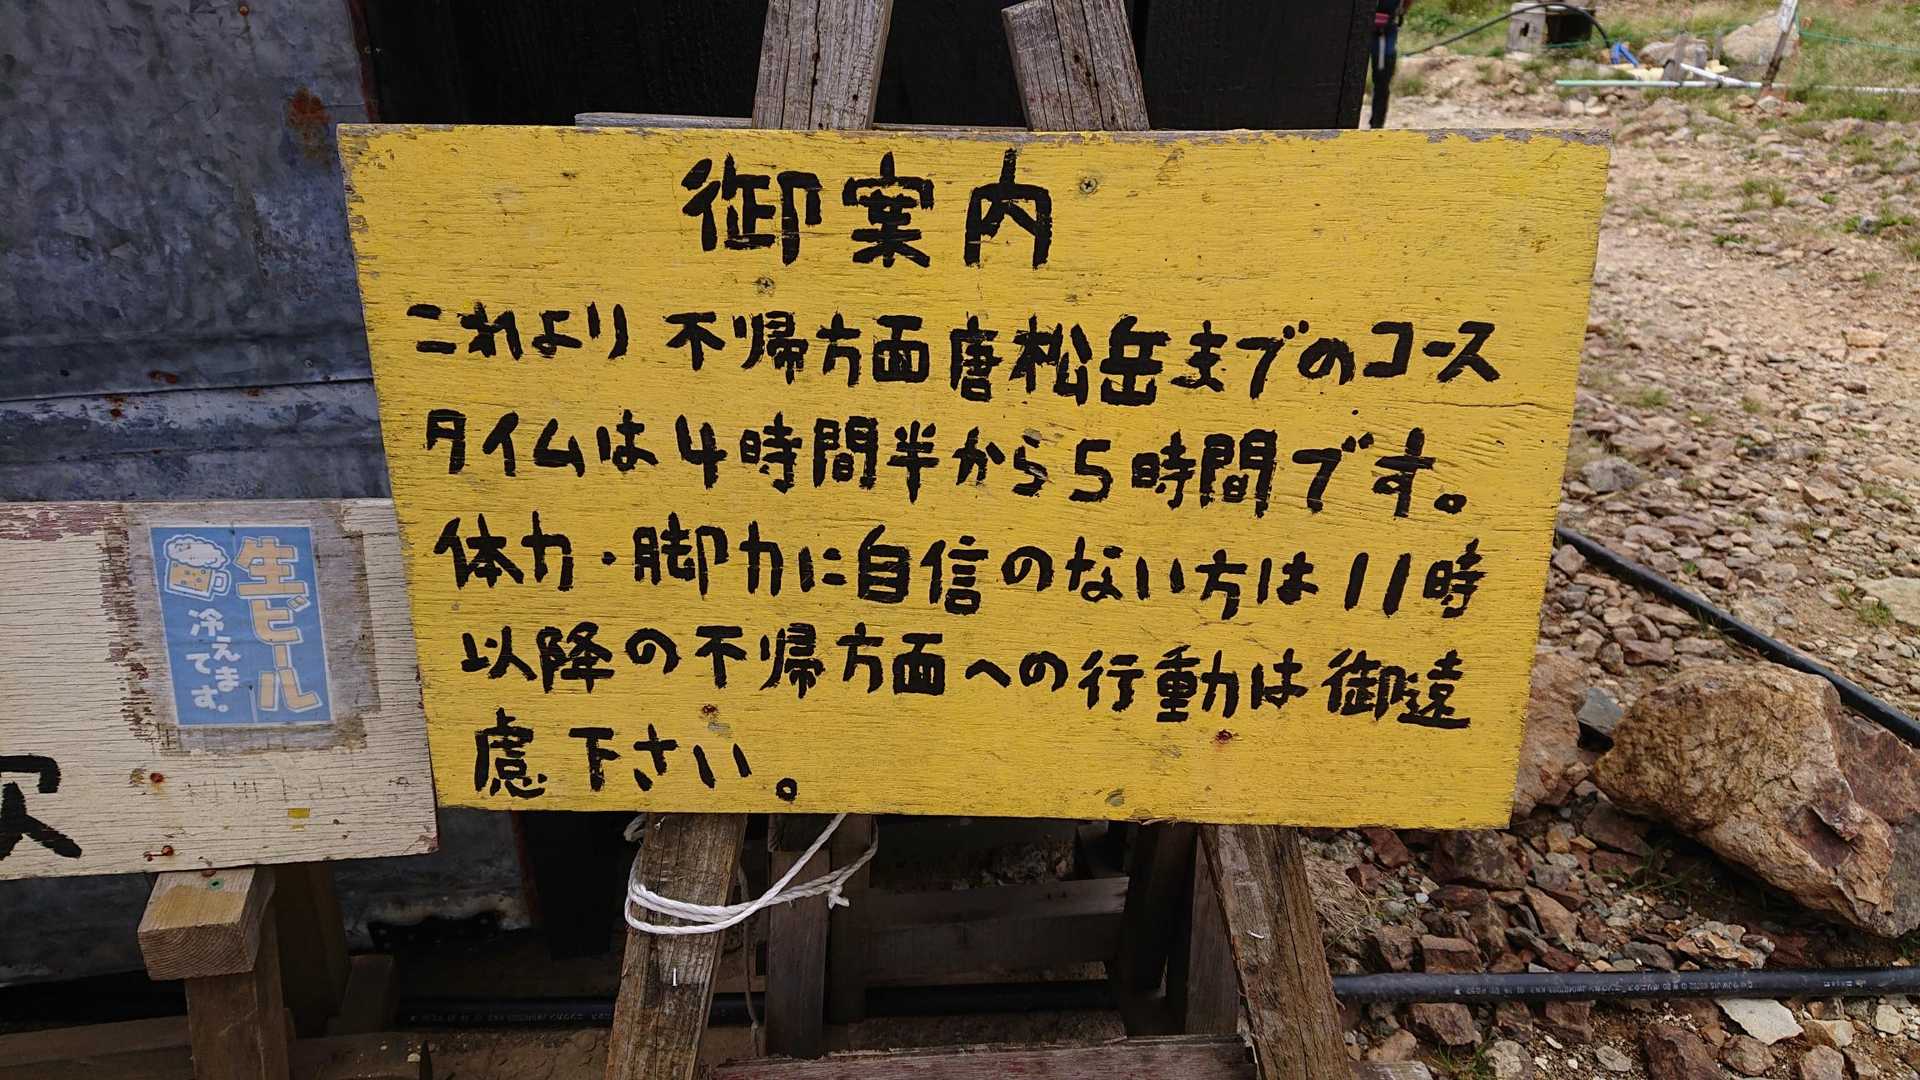 御案内
これより不帰方面唐松岳までのコース
タイムは4時間半から5時間です。
体力・脚力に自信のない方は11時
以降の不帰方面への行動は御遠
慮下さい。
生ビール
冷えてます。